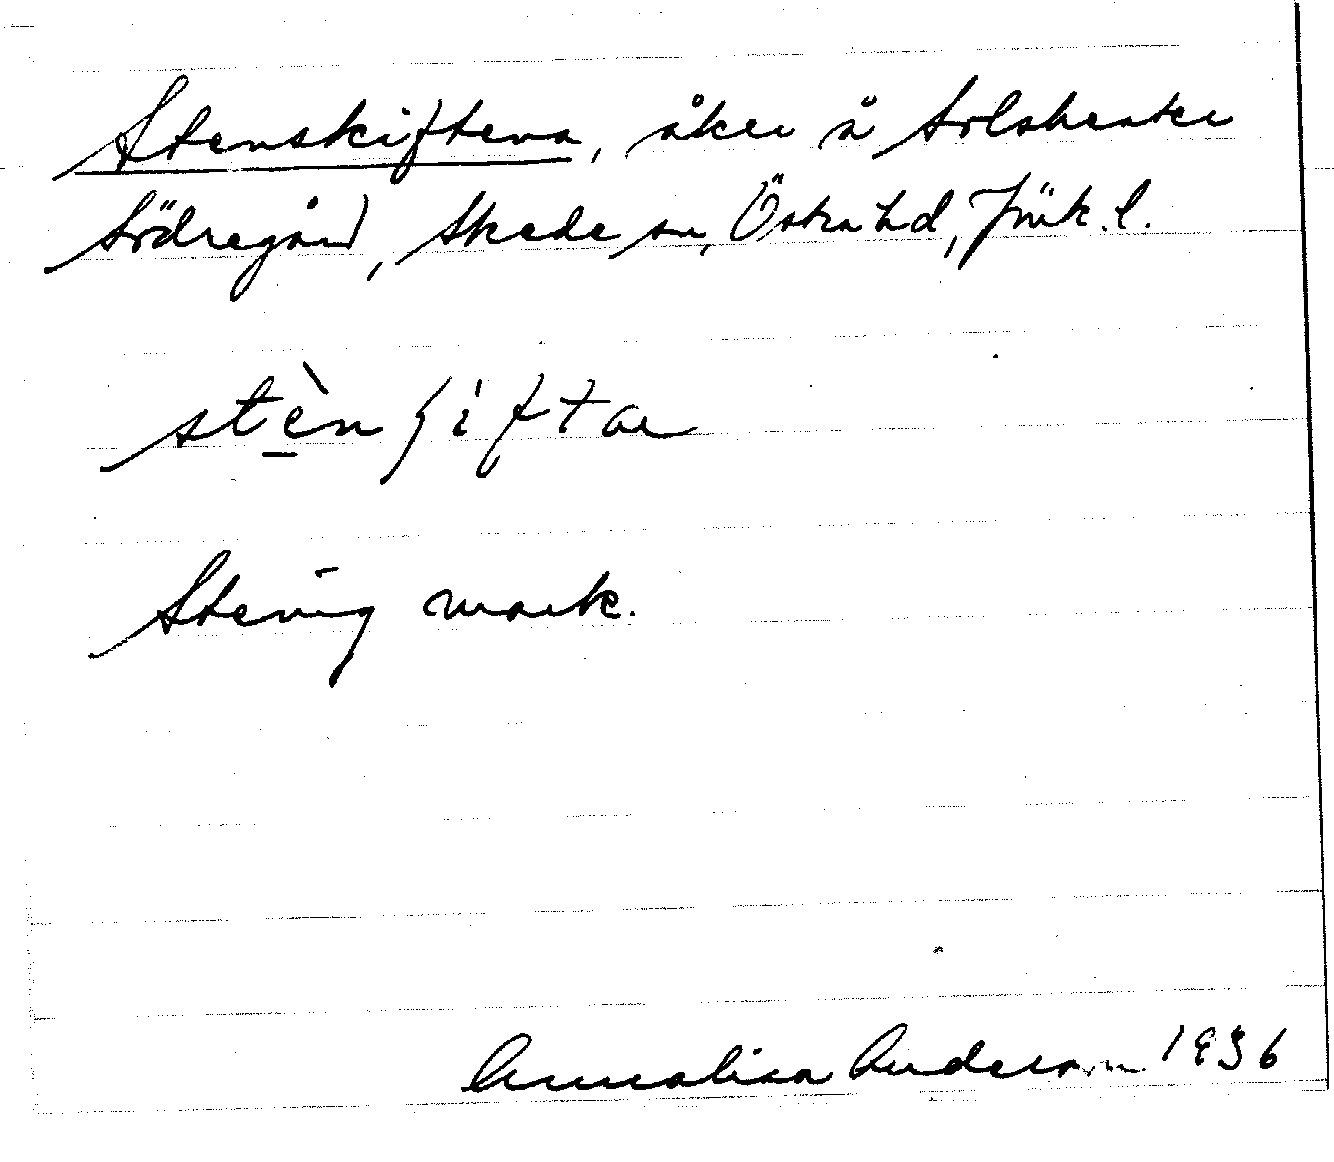 Stenskiftena, åker å Solsberke
Södregård, Skede sn, Östra hd, Jönk. l.
stèn ʃiftar
Stenig mark.
Annalisa Anderson 1936